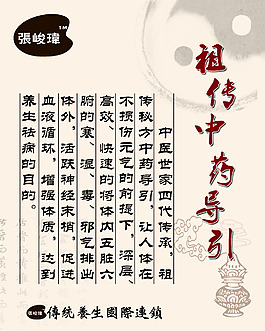 張峻瑋™
祖传中药导引
中医世家四代传承，祖
传秘方中药导引，让人体在
不损伤元气的前提下，深层、
高效、快速的将体内五脏六
腑的寒、湿、毒、邪气排出
体外，活跃神经末梢，促进
血液循环，增强体质，达到
养生祛病的目的。
張峻瑋 傳統養生國際連鎖